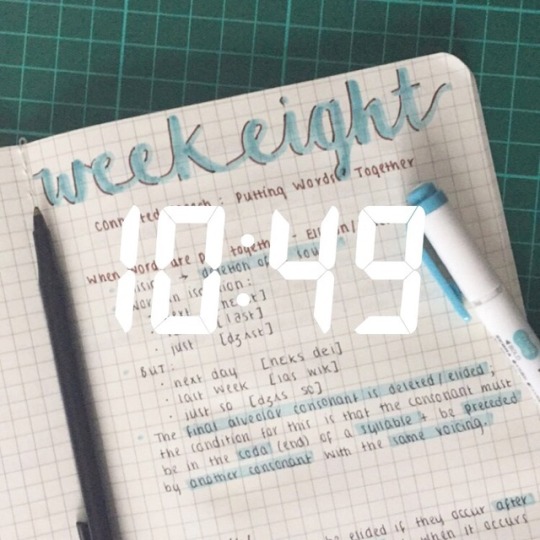 week eight
Connected Speech: Putting Words Together
10:49
When words are put together - Elision/
deletion of sounds
words in isolation:
· next [nekst]
· last [last]
· just [dʒʌst]
BUT:
· next day [neks deɪ]
· last week [las wik]
· just so [dʒʌs so]
The final alveolar consonant is deleted/elided;
the condition for this is that the consonant must
be in the coda (end) of a syllable + be preceded
by another consonant with the same voicing.
be elided if they occur after
when it occurs